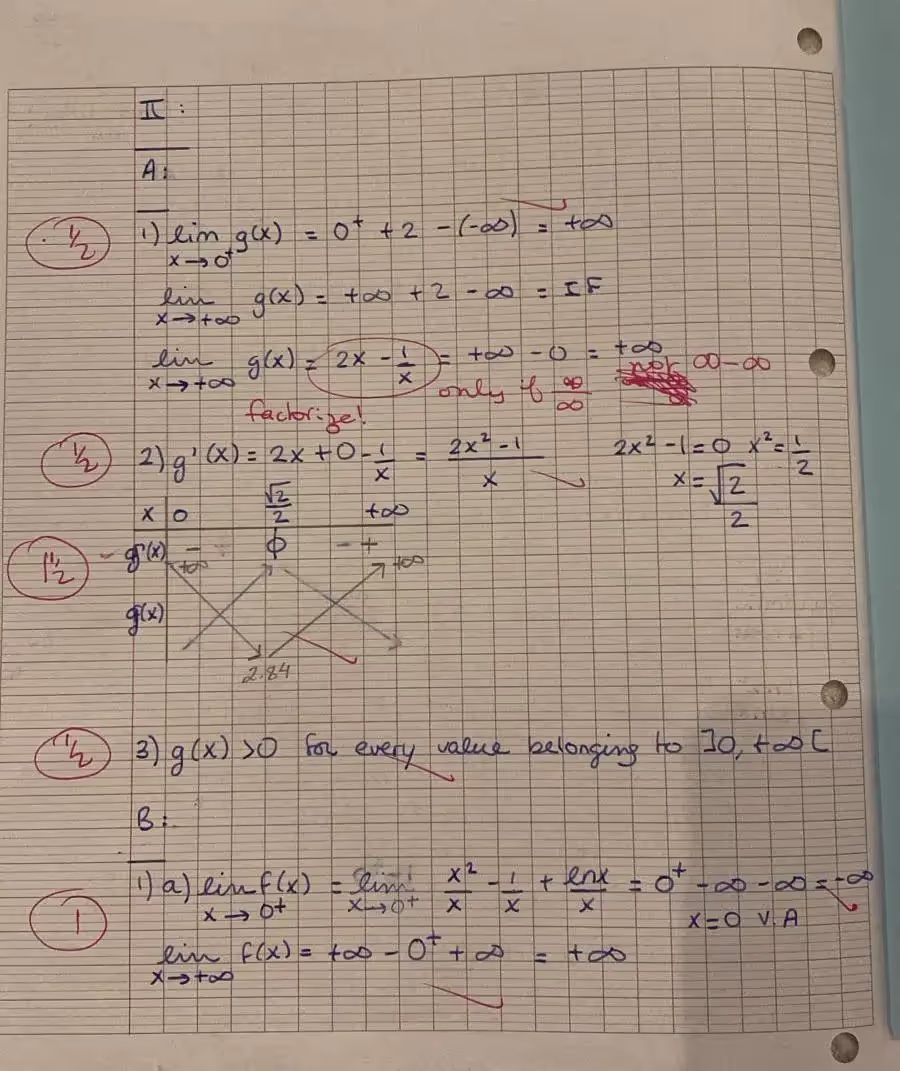 II :
A:
1/2 1) lim g(x) = 0⁺ + 2 - (-∞) = +∞
x→0⁺
lim g(x) = +∞ + 2 - ∞ = IF
x→+∞
lim g(x) = 2x - 1/x = +∞ - 0 = +∞ not ∞-∞
x→+∞ only if ∞/∞
factorize!
1/2 2) g'(x) = 2x + 0 - 1/x = (2x² - 1)/x 2x² - 1 = 0 x² = 1/2
x = √2/2
x 0 √2/2 +∞
1 1/2 g'(x) - 0 - +
+∞ +∞
g(x)
2.84
1/2 3) g(x) > 0 for every value belonging to ]0, +∞[
B:
1) a) lim f(x) = lim x²/x - 1/x + lnx/x = 0⁺ - ∞ - ∞ = -∞
x→0⁺ x→0⁺ x=0 V.A
1 lim f(x) = +∞ - 0⁺ + ∞ = +∞
x→+∞